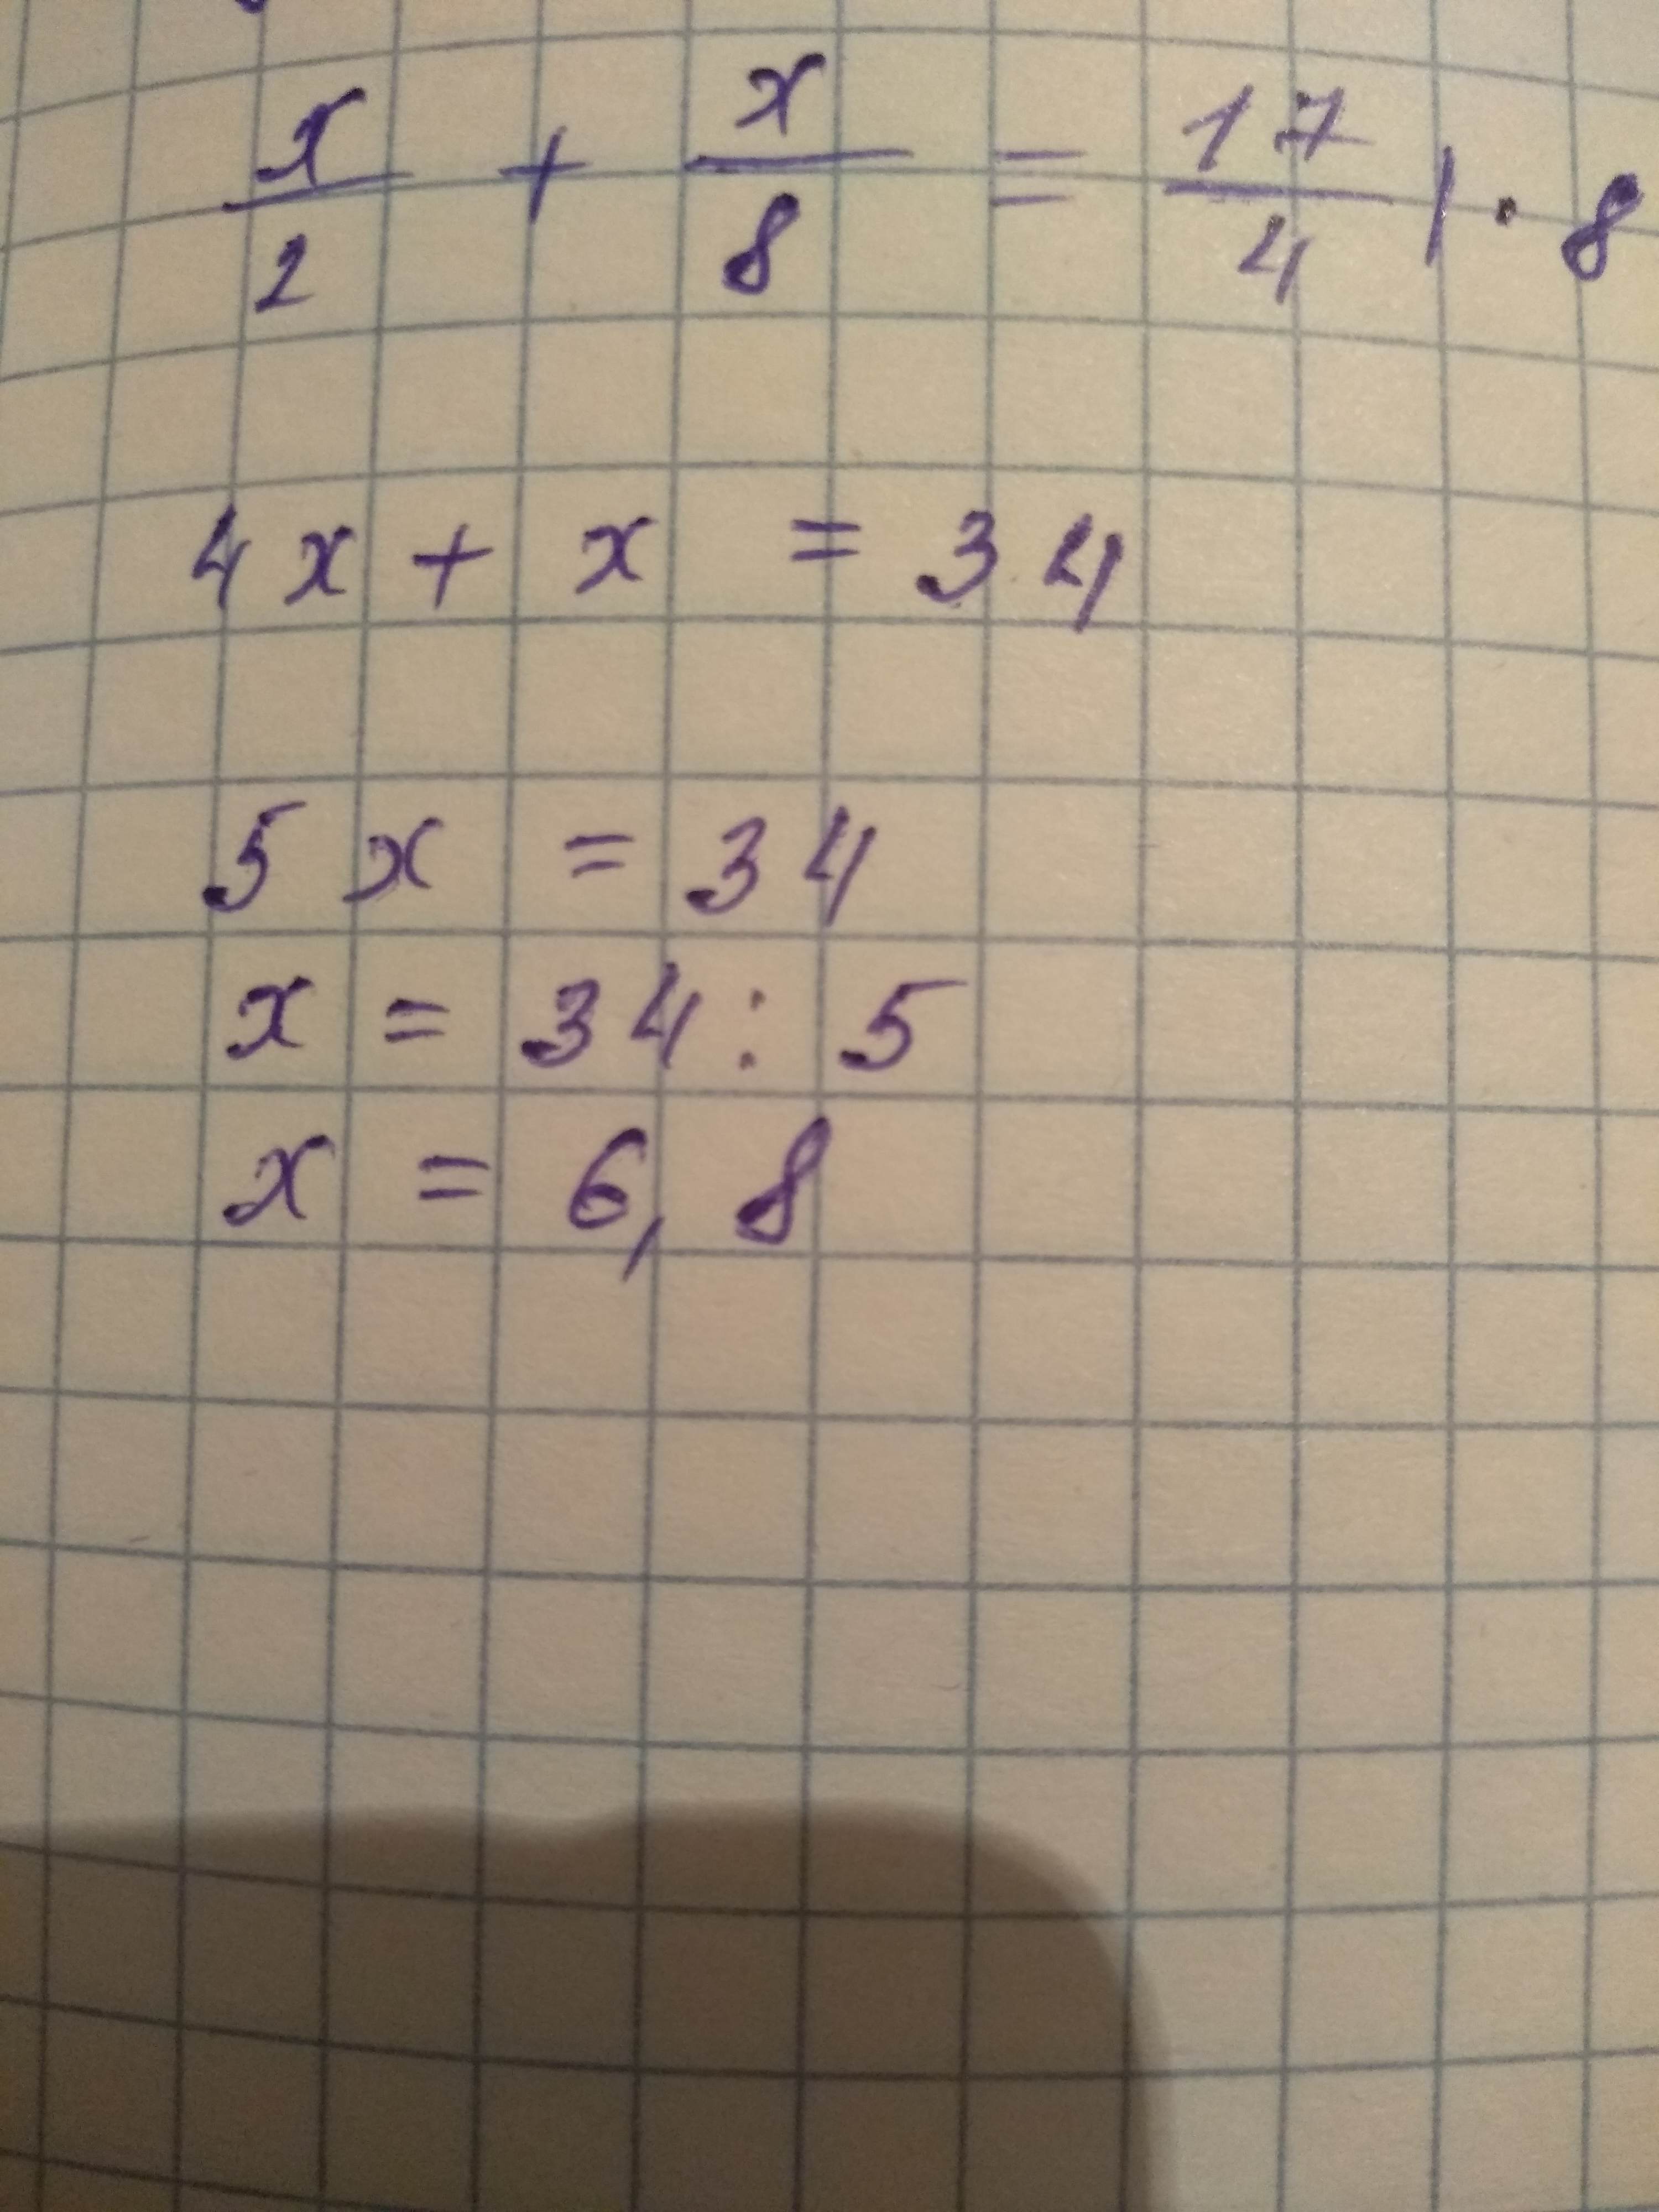 x/2 + x/8 = 17/4 | · 8
4x + x = 34
5x = 34
x = 34 : 5
x = 6,8